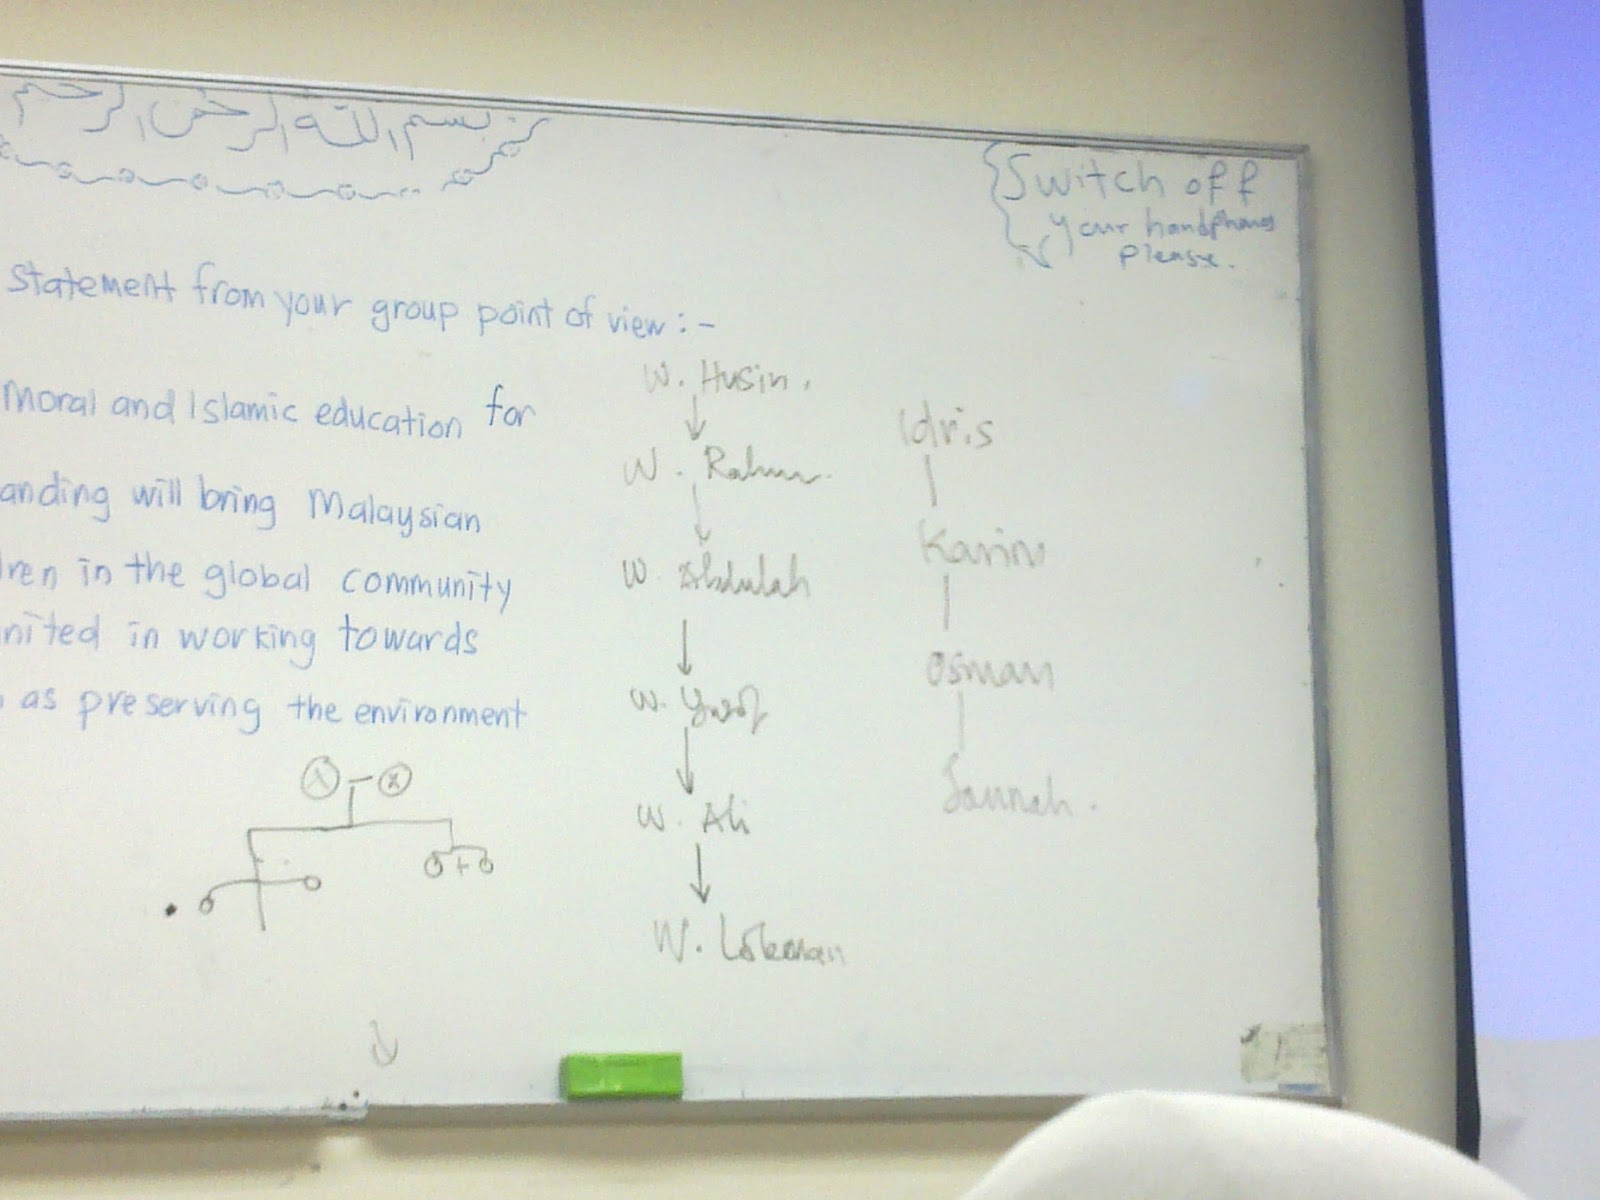 بسم الله الرحمن الرحيم
Switch off
your handphones
please.
statement from your group point of view :-
Moral and Islamic education for
anding will bring Malaysian
ren in the global community
nited in working towards
as preserving the environment
W. Husin.
W. Rahm
W. Abdulah
W. Yusof
W. Ali
W. Lokman
Idris
Karim
Osman
Jannah.